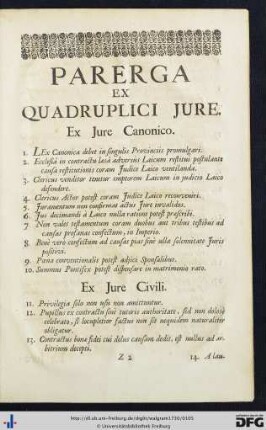 PARERGA
EX
QUADRUPLICI JURE.
Ex Jure Canonico.
1. LEx Canonica debet in singulis Provinciis promulgari.
2. Ecclesiâ in contractu læsâ adversùs Laicum restitui postulante
causa restitutionis coram Judice Laico ventilanda.
3. Clericus venditor tenetur emptorem Laicum in judicio Laico
defendere.
4. Clericus dictor potest coram Judice Laico reconveniri.
5. Juramentum non confirmat actus Jure invalidos.
6. Jus decimandi à Laico nulla ratione potest præscribi.
7. Non valet testamentum coram duobus aut tribus testibus ad
causas profanas confectum, in Imperio.
8. Bene verò confectum ad causas pias sine ulla solemnitate Juris
positivi.
9. Pœna conventionalis potest adjici Sponsalibus.
10. Summus Pontifex potest dispensare in matrimonio rato.
Ex Jure Civili.
11. Privilegia solo non usu non amittuntur.
12. Pupillus ex contractu sine tutoris authoritate, sed non dolosè
celebrato, si locupletior factus non sit nequidem naturaliter
obligatur.
13. Contractus bonæ fidei cui dolus causam dedit, est nullus ad ar-
bitrium decepti.
Z 2
14. A lau.
http://dl.ub.uni-freiburg.de/diglit/walgram1730/0185
© Universitätsbibliothek Freiburg
gefördert durch die
DFG
UNI
FREIBURG